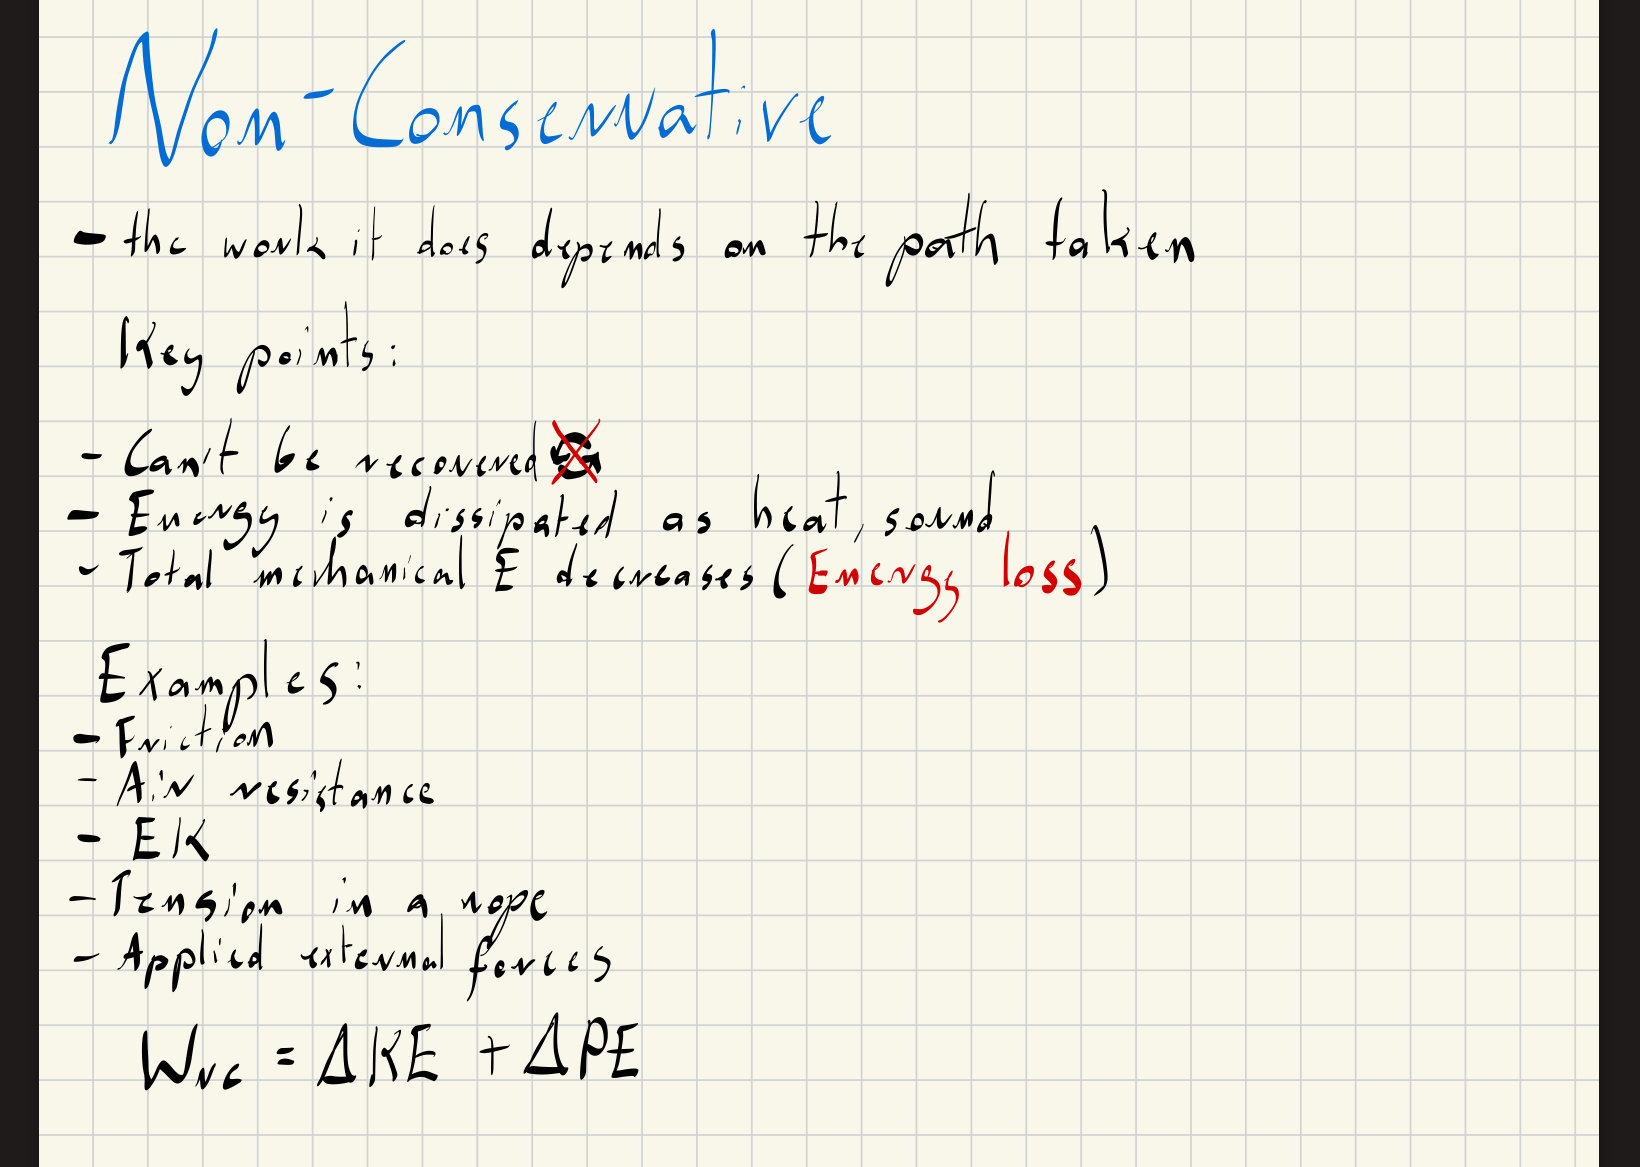 Non-Conservative
- the work it does depends on the path taken
Key points:
- Can't be recovered
- Energy is dissipated as heat, sound
- Total mechanical E decreases (Energy loss)
Examples:
- Friction
- Air resistance
- EK
- Tension in a rope
- Applied external forces
W_NC = ΔKE + ΔPE